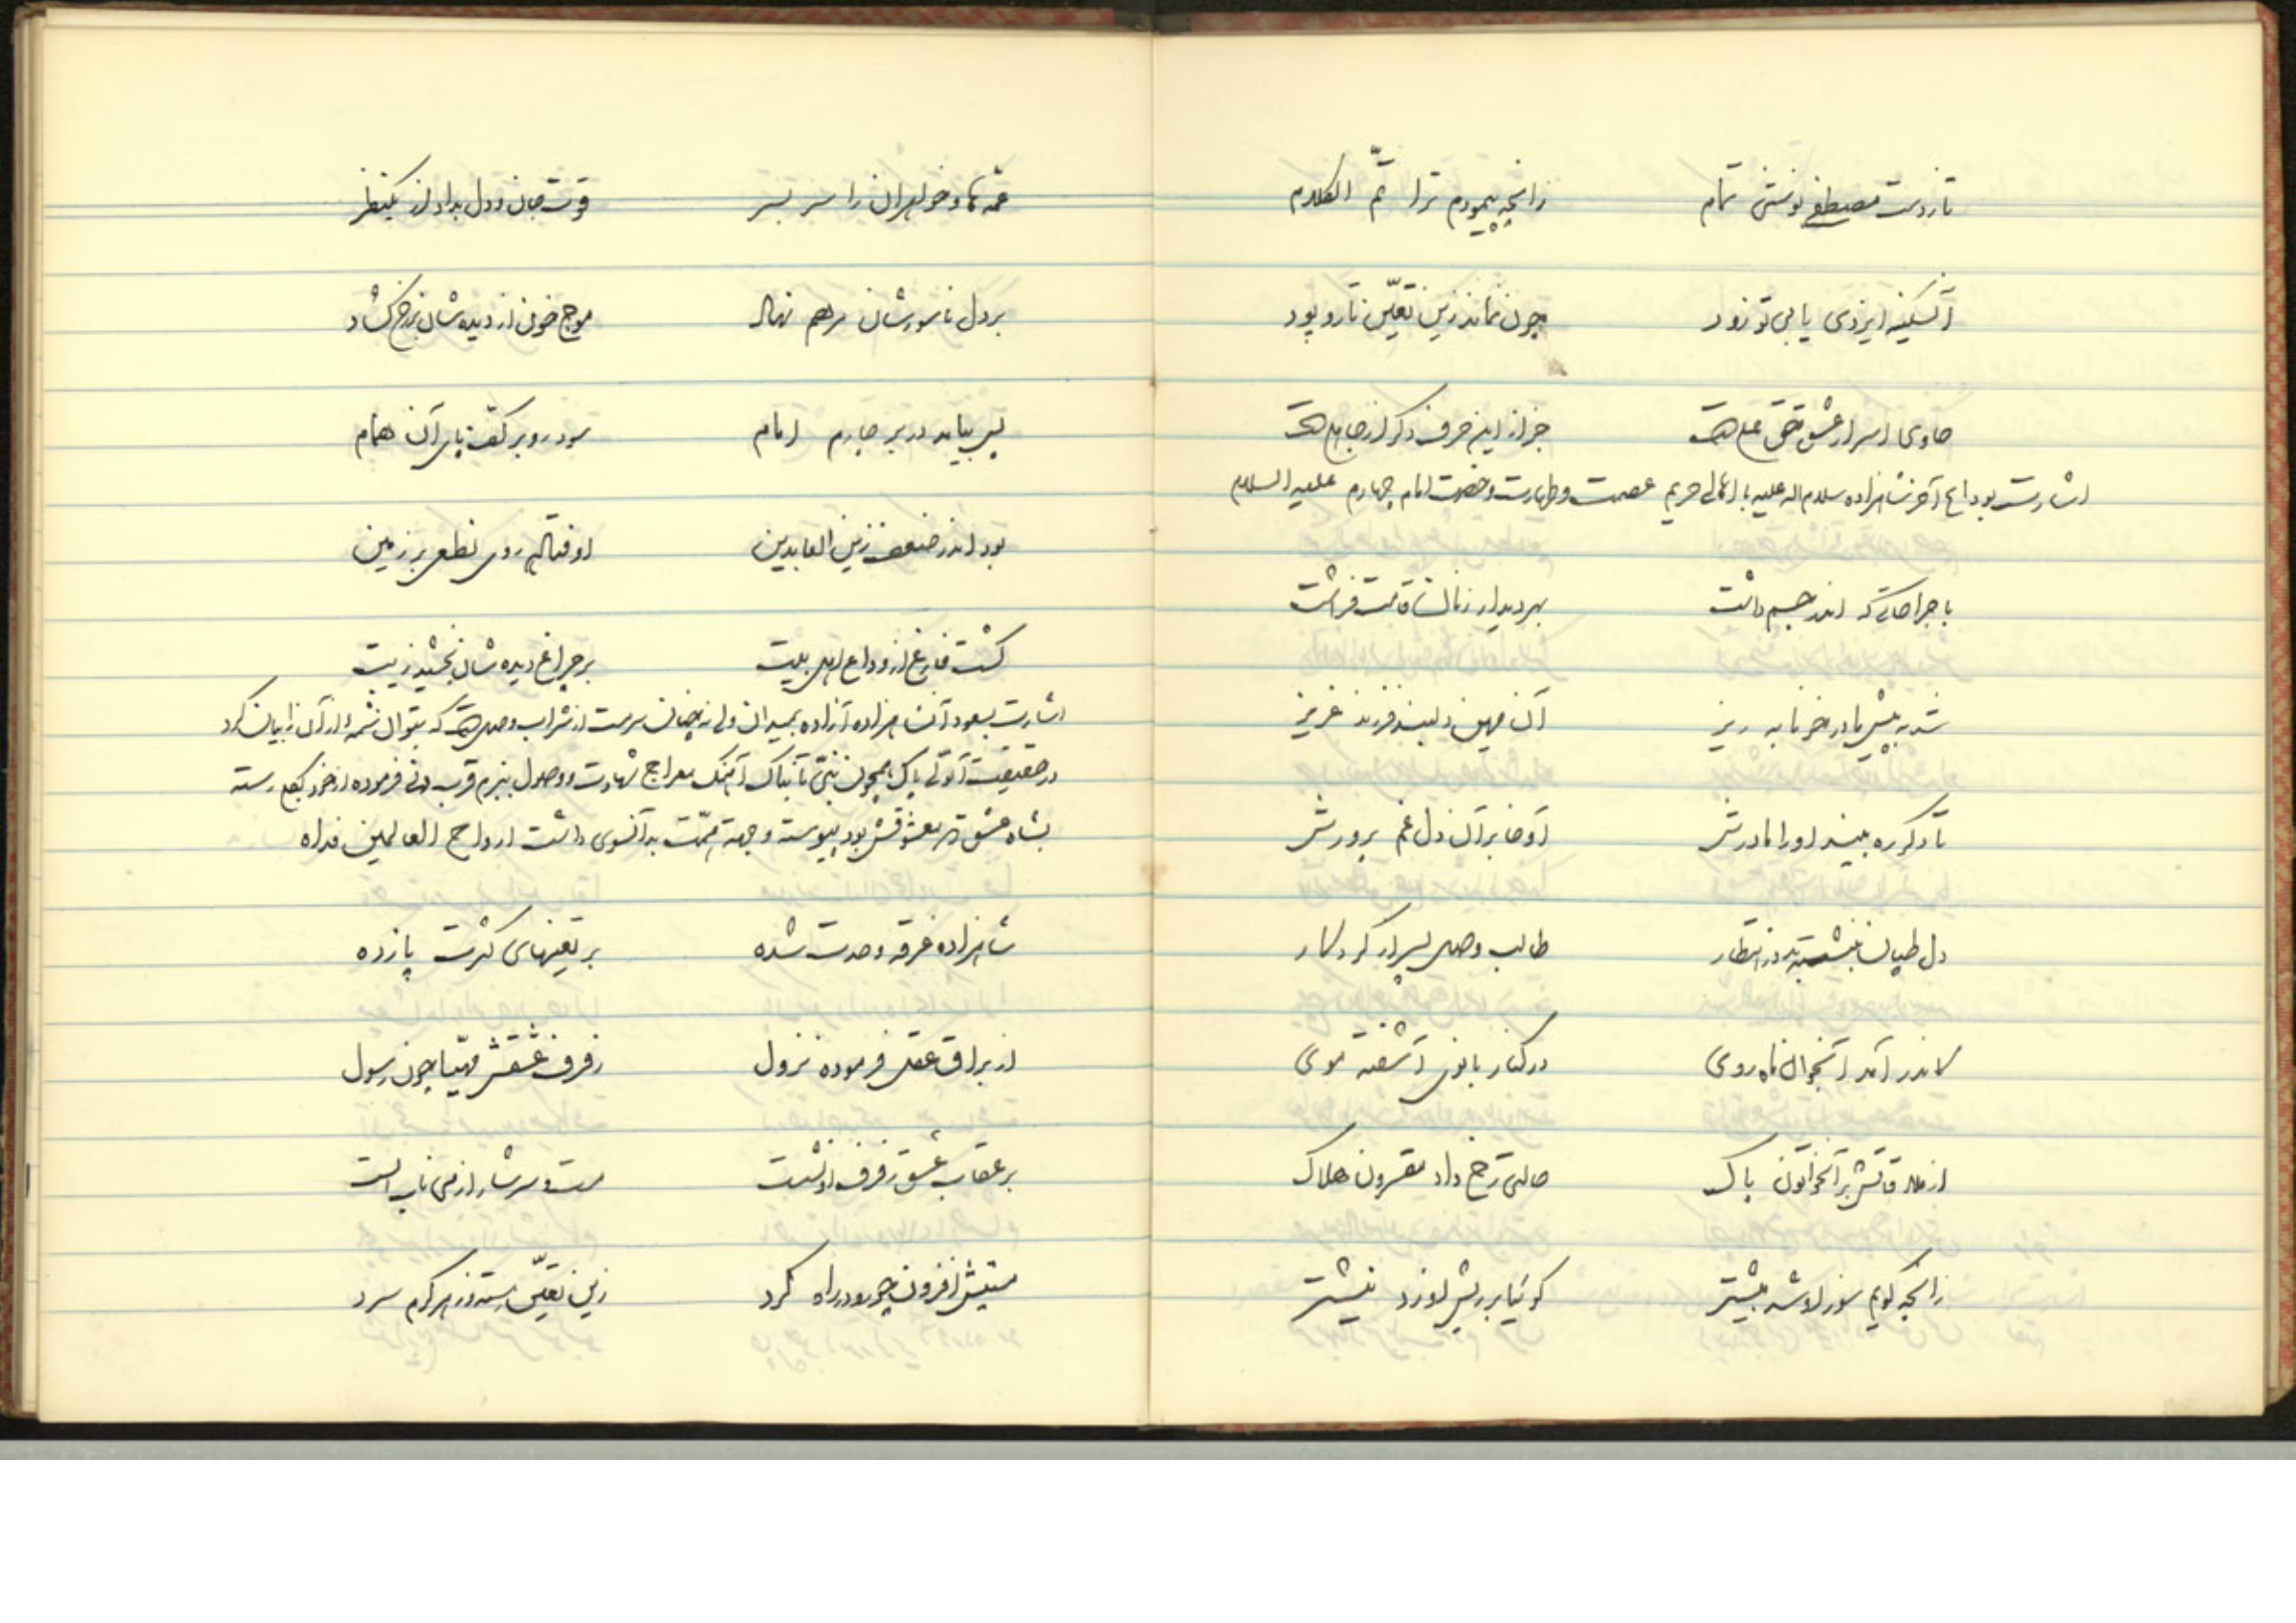 تا ز دست مصطفی نوشی تمام زانچه پیمودم ترا تمّ الکلام
آنسکینه ایزدی یابی تو زود چون نماند زین تعیّن تار و پود
حاوی اسرار عشق حق علیست جز از این حرف دگر از جاهلیست
اشارت بوداع آخر شاهزاده سلام اله علیه با اهالی حریم عصمت و طهارت و حضرت امام چهارم علیه السلام
با جراحاتی که اندر جسم داشت بهر دیدار زنان قامت فراشت
شد به پیش مادر خونابه ریز آن مهین دلبند فرزند عزیز
تا دگر ره بیند او را مادرش آوخا بر آن دل غم پرورش
دل طپان بنشسته در انتظار طالب وصل پسر از کردگار
کاندر آمد آنجوان ماه روی در کنار بانوی آشفته موی
از ملاقاتش بر آنخاتون پاک حالتی رخ داد مقرون هلاک
زانچه گویم سوز او شد بیشتر گوئیا بر ریش او زد نیشتر
عمّه ها و خواهران را سر بسر قوت جان و دل بداد از یکنظر
بر دل ناسورشان مرهم نهاد موج خون از دیده شان بر رخ گشاد
پس بیامد در بر چارم امام سود رو بر کف پای آن همام
بود اندر ضعف زین العابدین اوفتاده روی نطعی بر زمین
گشت فارغ از وداع اهل بیت بر چراغ دیده شان بخشید زیت
اشارت بعود آن شاهزاده آزاده بمیدان ولی نه چنان سرمست از شراب وصلست که بتوان شمهٔ از آن را بیان کرد
در حقیقت آنولی پاک همچون نبی تابناک آهنگ معراج شهادت و وصول ببزم قرب دنی فرموده از خود بکلی رسته
بشاه عشق در معشوقش بود پیوسته وجهة همّت بدآنسوی داشت ارواح العالمین فداه
شاهزاده غرقه وحدت شده بر تعینهای کثرت پا زده
از براق عقل فرموده نزول رفرف عشقش مهیّا چون رسول
بر عقاب عشق رفرف او نشست مست و سرشار از می ناب الست
مستیش افزون چو رو در راه کرد زین تعیّن رسته از هر گرم سرد